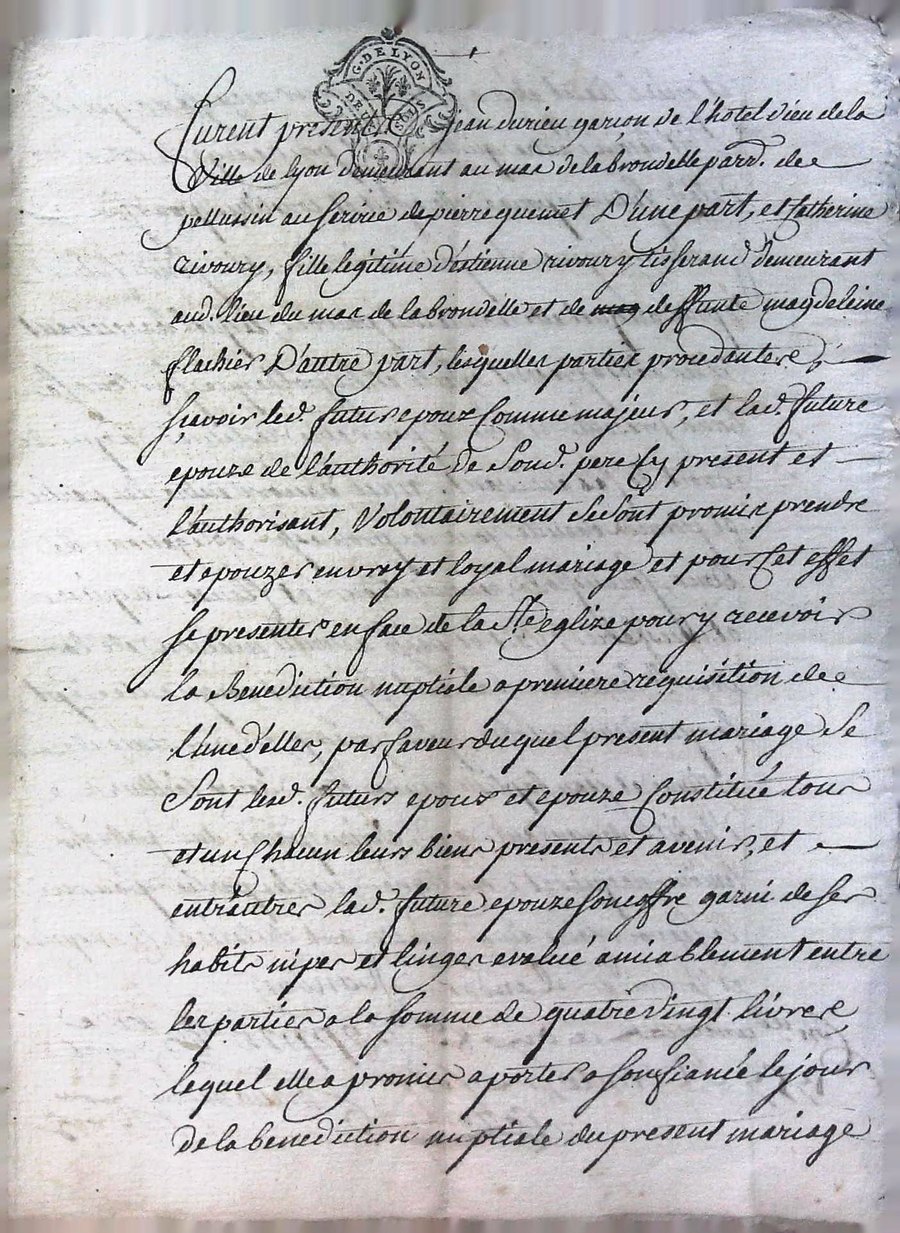 G. DE LYON
DEUX SOLS
furent presents jean durieu garçon de l'hotel dieu de la
Ville de lyon demeurant au mas de la brondelle parr. de
pellussin au service de pierre quemet D'une part, et Catherine
rivoury, fille legitime d'estienne rivoury tisserand demeurant
aud. lieu du mas de la brondelle et de deffunte magdeleine
flachier D'autre part, lesquelles parties procedantes
sçavoir led. futur epoux Comme majeur, et lad. future
epouze de l'authorité de Soud. pere Cy present et
l'authorisant, Volontairement Se Sont promis prendre
et epouzer en vray et loyal mariage et pour Cet effet
se presenter en face de la Ste eglize pour y recevoir
la Benediction nuptiale a premiere requisition de
l'une d'elles, par faveur duquel present mariage Se
Sont lesd. futurs epoux et epouze Constitué tous
et un Chacun leurs biens presents et avenir, et
entr'autres lad. future epouze son coffre garni de ses
habits nipes et linges evalué amiablement entre
les parties a la somme de quatre Vingt livres
lequel elle a promis aporter a son fiancé le jour
de la benediction nuptiale du present mariage